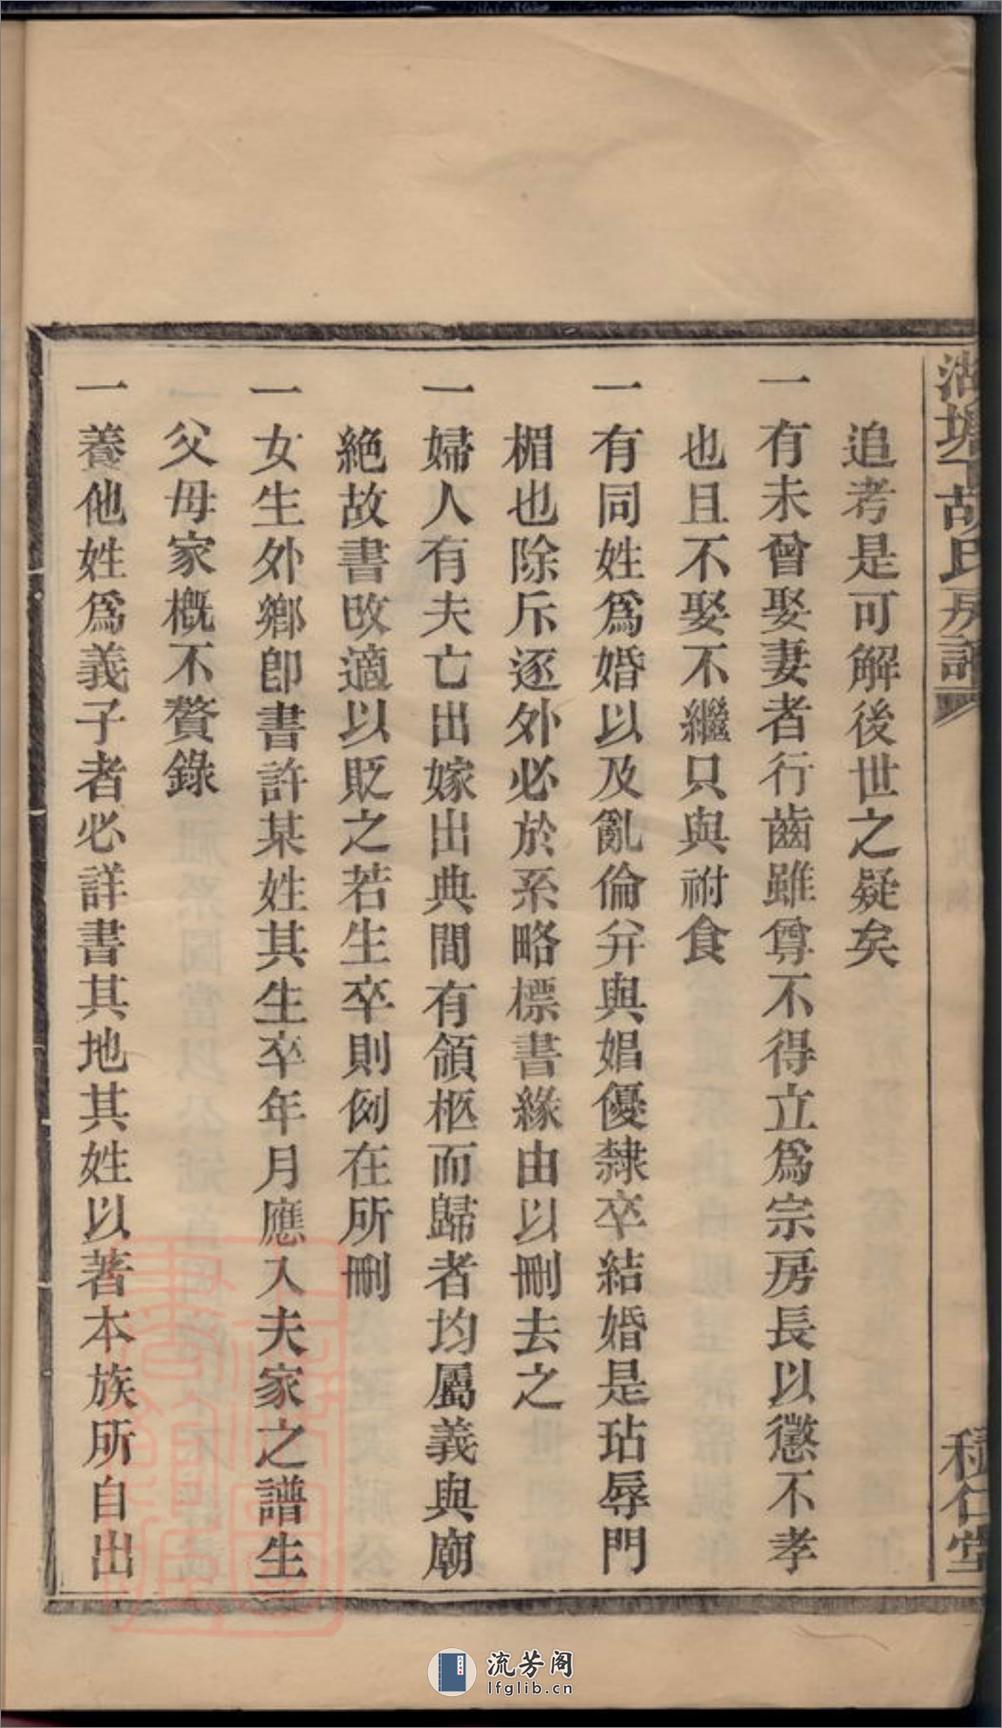 湖塘下胡氏房譜
積仁堂
追考是可解後世之疑矣
一有未曾娶妻者行齒雖尊不得立爲宗房長以懲不孝
也且不娶不繼只與祔食
一有同姓爲婚以及亂倫弁與娼優隸卒結婚是玷辱門
楣也除斥逐外必於系略標書緣由以刪去之
一婦人有夫亡出嫁出典間有領柩而歸者均屬義與廟
絶故書攺適以貶之若生卒則例在所刪
一女生外鄕卽書許某姓其生卒年月應入夫家之譜生
父母家槪不贅錄
一養他姓爲義子者必詳書其地其姓以著本族所自出
流芳阁
lfglib.cn